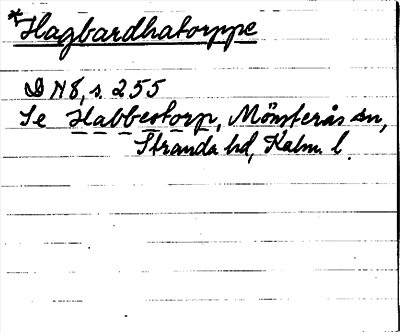 *Hagbardhatorppe
DN 8, s. 255
Se Habbestorp, Mönsterås sn,
Stranda hd, Kalm. l.